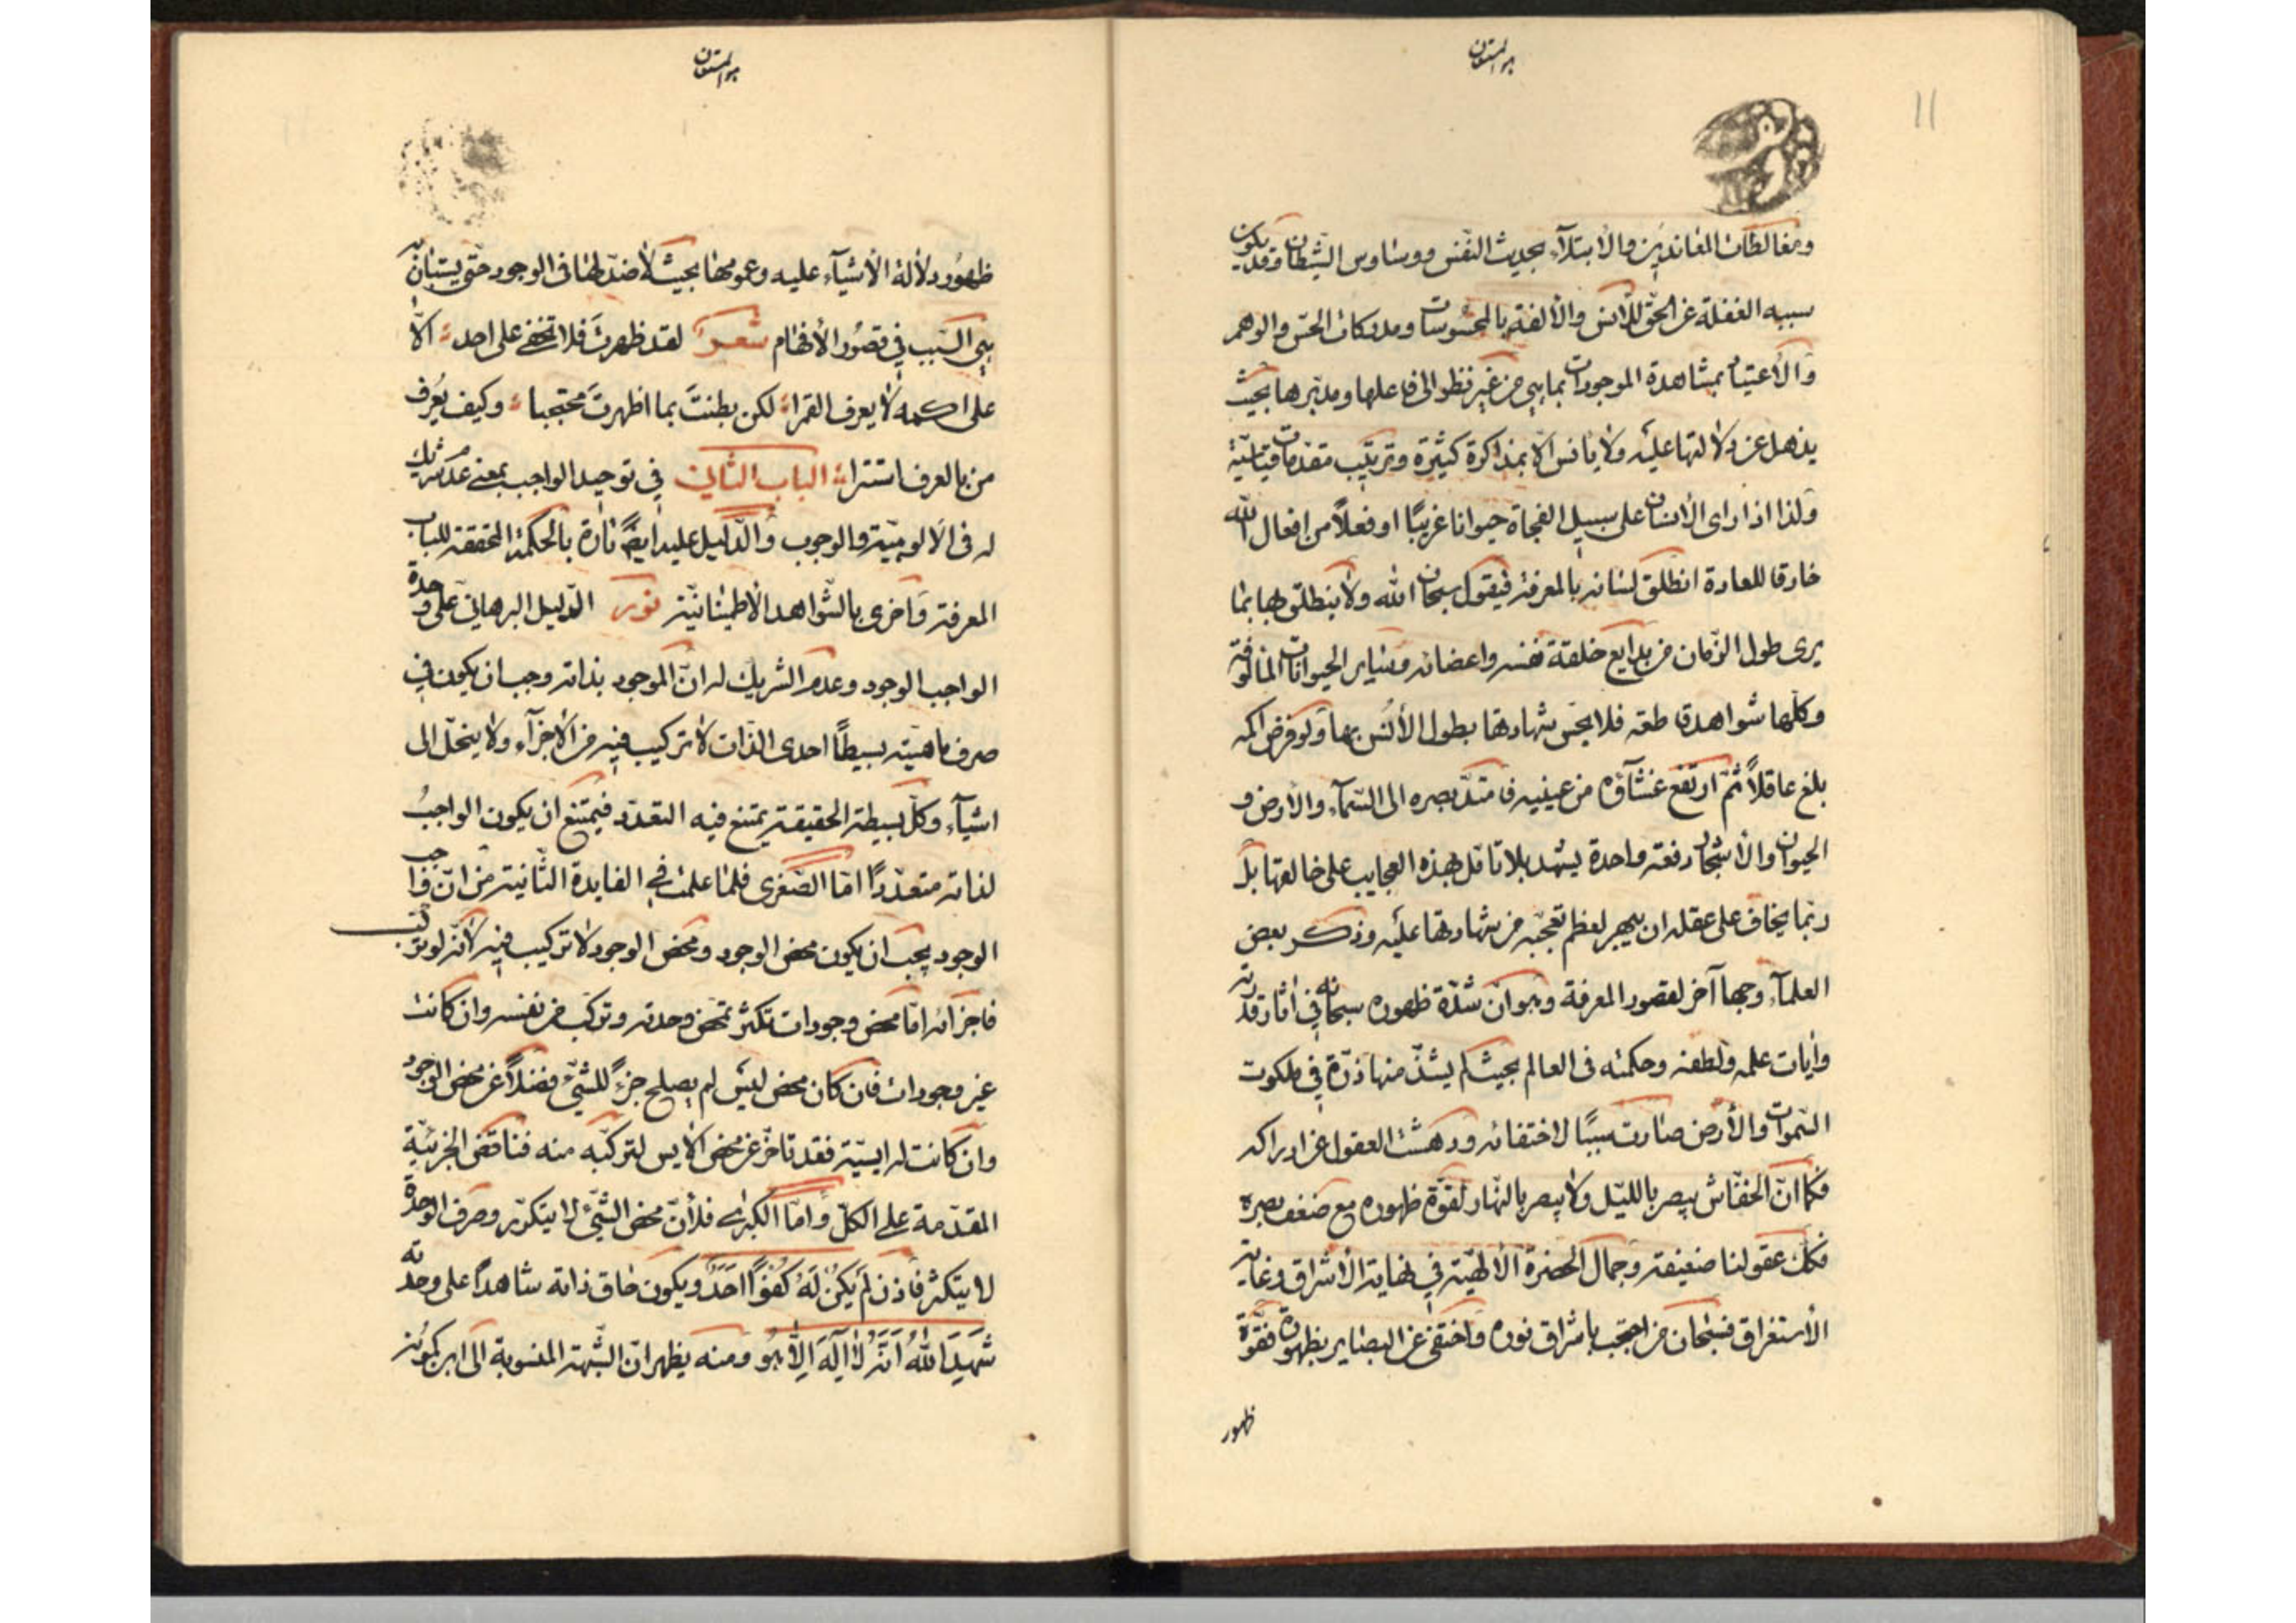 هو المستعان
11
ومغالطات المعاندین والابتلآء بحدیث النّفس ووساوس الشّیطان وقد یکون
سببه الغفلة عن الحقّ للأنس والألفة بالمحسوسات ومدرکات الحسّ والوهم
والأعتیاد بمشاهدة الموجودات بما هی من غیر نظر الی فاعلها ومدبّرها بحیث
یذهل عن دلالتها علیه ولا یأنس الّا بمذاکرة کثیرة وترتیب مقدّمات قیاسیّة
ولذا اذا رای الأنسان علی سبیل الفجاة حیوانا غریبًا او فعلاً من افعال الله
خارقا للعادة انطلق لسانه بالمعرفة فیقول سبحان الله ولا ینطلق بها بما
یری طول الزّمان من بدایع خلقة نفسه واعضائه وسایر الحیوانات المألوفة
وکلّها شواهد قاطعه فلا یحسّ شهادتها بطول الأنس بها ولو فرض اکمه
بلغ عاقلاً ثمّ ارتفع غشآؤه من عینیه فامتدّ بصره الی السّمآء والأرض و
الحیوان والأشجار دفعة واحدة یشهد بلا تامّل بهذه العجایب علی خالقها بل
ربّما یخاف علی عقله ان یبهر لعظم تعجّبه من شهادتها علیه وذکر بعض
العلمآء وجها آخر لقصور المعرفة وهو انّ شدّة ظهوره سبحانه فی اثار قدرته
وایات علمه ولطفه وحکمته فی العالم بحیث لم یشذّ منها ذرّة فی ملکوت
السّموات والأرض صارت سببًا لاختفائه ودهشت العقول عن ادراکه
فکما انّ الخفّاش یبصر باللیل ولا یبصر بالنّهار لقوّة ظهوره مع ضعف بصره
فکک عقولنا ضعیفة وجمال الحضرة الألهیّة فی نهایة الأشراق وغایة
الأستغراق فسبحان من احتجب باشراق نوره واختفی عن البصایر بظهوره فقوّة
ظهور
هو المستعان
ظهور دلالة الأشیآء علیه وعمومها بحیث لا ضدّ لها فی الوجود حتّی یستبان به
هی السّبب فی قصور الأفهام شعر لقد ظهرتَ فلا تخفی علی احد الّا
علی اکمه لا یعرف القمرا لکن بطنتَ بما اظهرتَ محتجبا وکیف یُعرف
من بالعرف استترا الباب الثانی فی توحید الواجب بمعنی عدم شریک
له فی الالوهیّة والوجوب والدّلیل علیه ایضًا تارة بالحکمة المحققة للباب
المعرفة واخری بالشّواهد الاطمینانیّة نور الدّلیل البرهانی علی وحدة
الواجب الوجود وعدم الشریک له انّ الموجود بذاته وجب ان یکون فی
صرف ماهیّته بسیطًا احدی الذّات لا ترکیب فیه من الأجزآء ولا ینحلّ الی
اشیآء وکلّ بسیطة الحقیقة یمتنع فیه التعدّد فیمتنع ان یکون الواجبُ
لذاته متعدّدًا امّا الصّغری فلما علمت فی الفایدة الثّانیة من انّ واجب
الوجود یجب ان یکون محض الوجود ومحض الوجود لا ترکیب فیه لأنّه لو ترکّب
فاجزائه امّا محض وجودات تکثّر تمحّض وحدته وترکّب من نفسه وان کانت
غیر وجودات فان کان محض لیس لم یصلح جزءً للشّیء فضلاً عن محض الوجود
وان کانت له ایسیّة فقد تأخّر عن محض الأیس لترکّبه منه فناقض الجزئیّة
المقدّمة علی الکلّ وامّا الکبری فلأنّ محض الشّیء لا یتکرّر وصرف الوحدة
لا یتکثّر فاذن لَم یَکُن لَهُ کُفُوًا اَحَد ویکون حاق ذاته شاهدًا علی وحدته
شَهِدَ اللهُ اَنّهُ لا اِلٰهَ اِلّا هُو ومنه یظهر انّ الشّبهة المنسوبة الی ابن کمونه